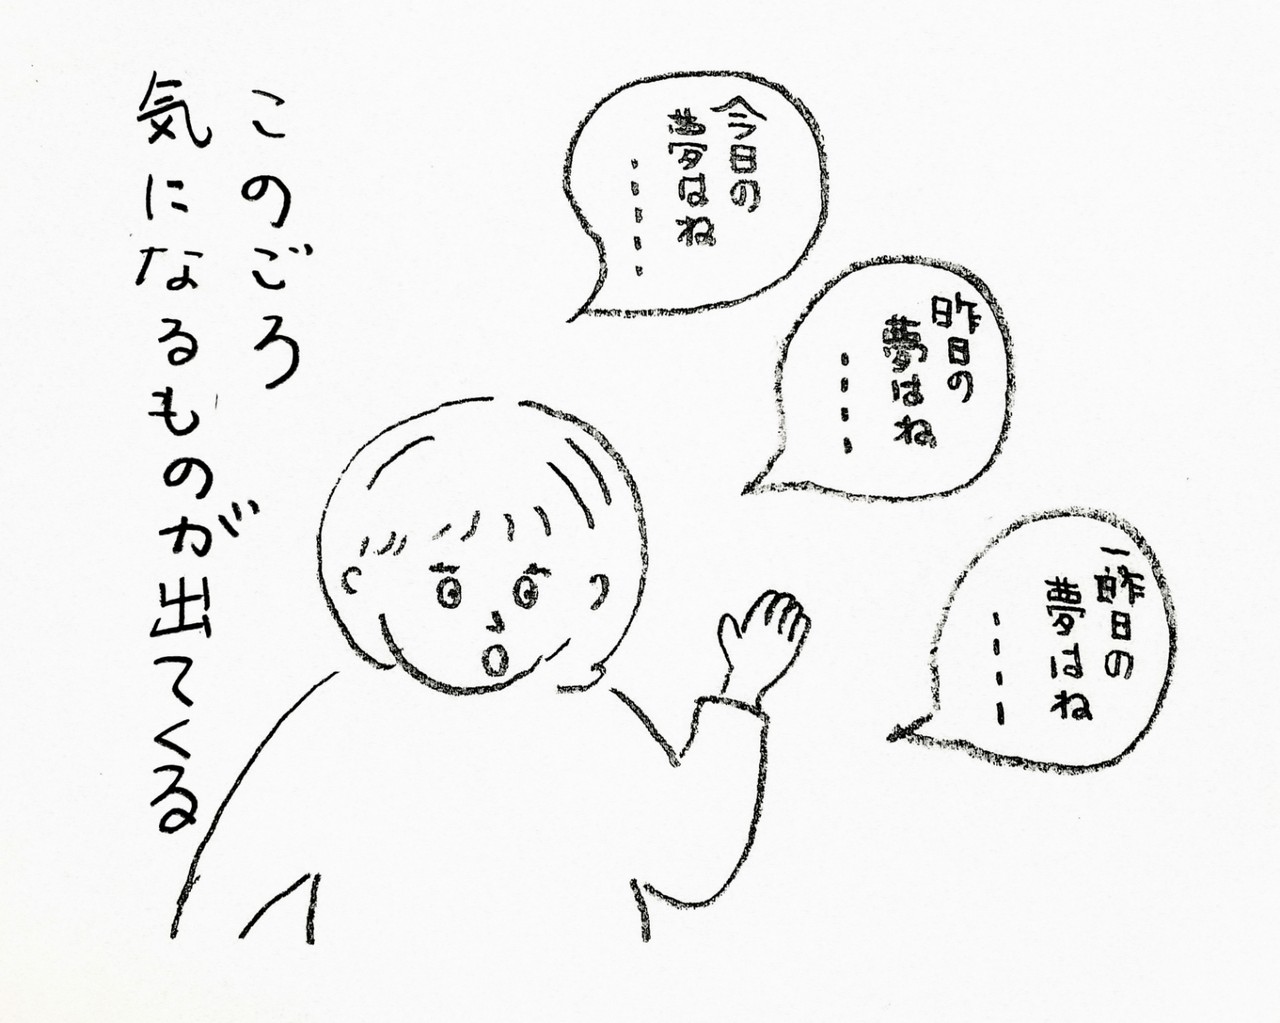 このごろ
気になるものが出てくる
今日の
夢はね
・・・・・
昨日の
夢はね
・・・・
一昨日の
夢はね
・・・・